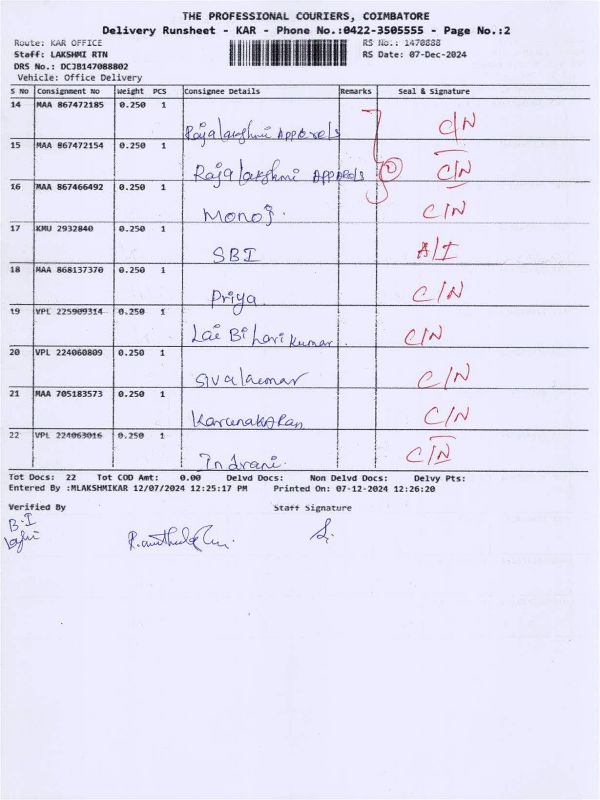 THE PROFESSIONAL COURIERS, COIMBATORE
Delivery Runsheet - KAR - Phone No.:0422-3505555 - Page No.:2
Route: KAR OFFICE RS No.: 1470888
Staff: LAKSHMI RTN RS Date: 07-Dec-2024
DRS No.: DCJB147088802
Vehicle: Office Delivery
S No Consignment No Weight PCS Consignee Details Remarks Seal & Signature
14 MAA 867472185 0.250 1 Rajalakshmi Apparels C/N
15 MAA 867472154 0.250 1 Rajalakshmi Apparels C/N
16 MAA 867466492 0.250 1 Monoj. C/N
17 KMU 2932840 0.250 1 SBI A/I
18 MAA 868137370 0.250 1 Priya C/N
19 VPL 225909314 0.250 1 Lal Bihari Kumar C/N
20 VPL 224060809 0.250 1 Sivakumar C/N
21 MAA 705183573 0.250 1 Karunakaran C/N
22 VPL 224063016 0.250 1 Indrani. C/N
Tot Docs: 22 Tot COD Amt: 0.00 Delvd Docs: Non Delvd Docs: Delvy Pts:
Entered By :MLAKSHMIKAR 12/07/2024 12:25:17 PM Printed On: 07-12-2024 12:26:20
Verified By Staff Signature
B.I